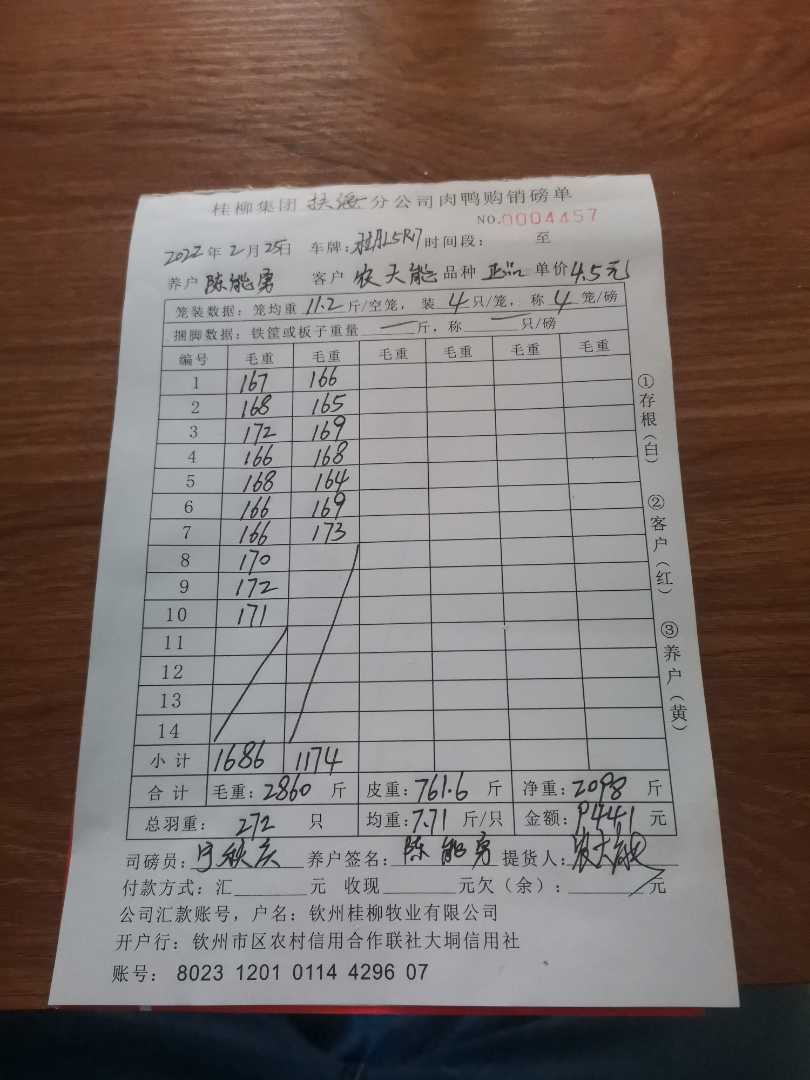 桂柳集团 扶绥 分公司肉鸭购销磅单
NO.0004457
2022年2月25日 车牌: 时间段: 至
养户 陈能勇 客户 农天能 品种 正品 单价 4.5元
笼装数据: 笼均重 11.2 斤/空笼, 装 4 只/笼, 称 4 笼/磅
捆脚数据: 铁筐或板子重量 — 斤, 称 — 只/磅
编号 毛重 毛重 毛重 毛重 毛重 毛重
1 167 166
2 168 165
3 172 169
4 166 168
5 168 164
6 166 169
7 166 173
8 170
9 172
10 171
11
12
13
14
小计 1686 1174
合计 毛重: 2860 斤 皮重: 761.6 斤 净重: 2098 斤
总羽重: 272 只 均重: 7.71 斤/只 金额: 9441 元
司磅员: 养户签名: 陈能勇 提货人: 农天能
付款方式: 汇 元 收现 元欠(余): 元
公司汇款账号, 户名: 钦州桂柳牧业有限公司
开户行: 钦州市区农村信用合作联社大垌信用社
账号: 8023 1201 0114 4296 07
①存根(白)
②客户(红)
③养户(黄)